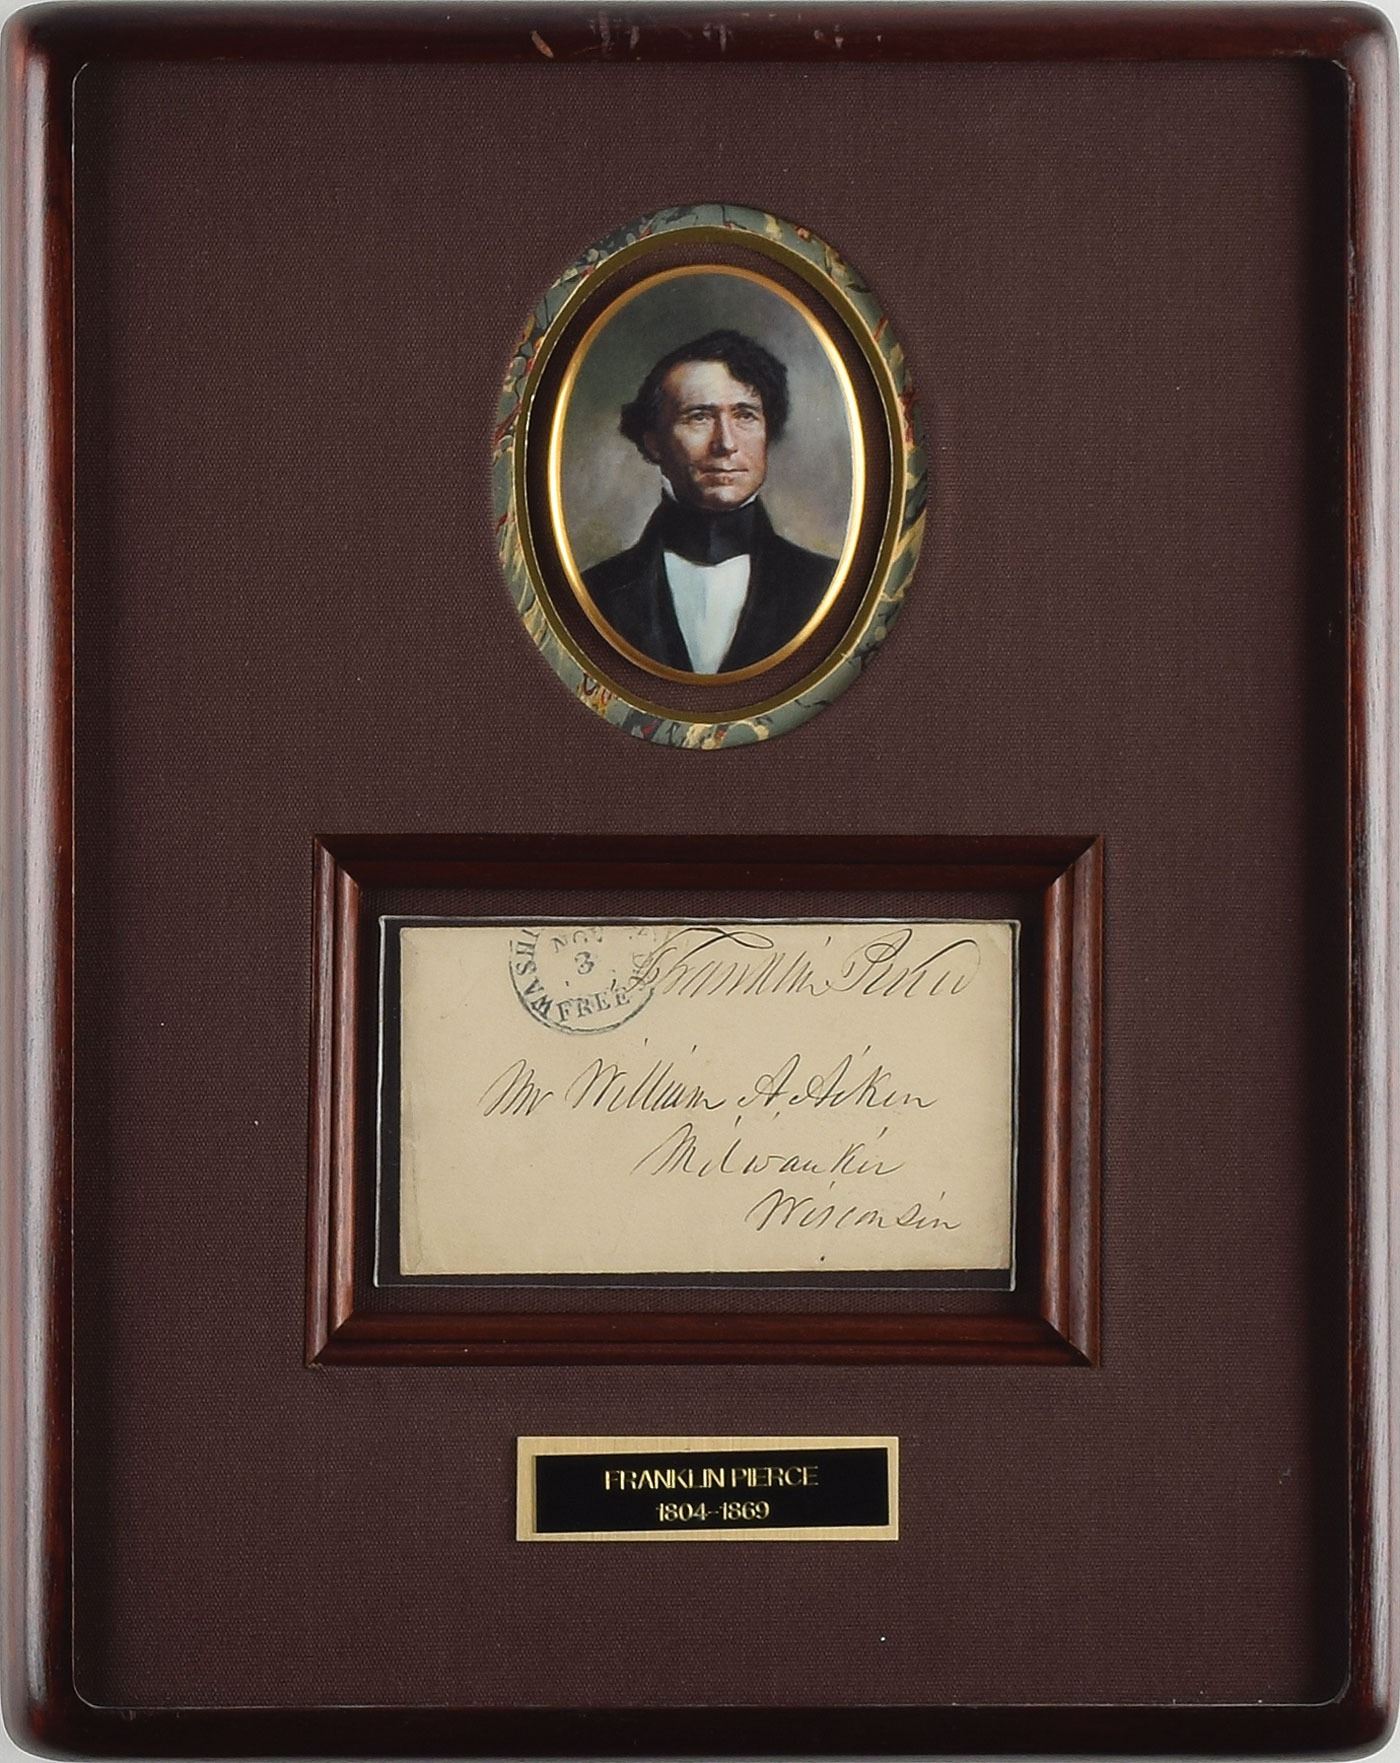 WASHI
NOV
3
FREE
Franklin Pierce
Mr William A. Aiken
Milwaukie
Wisconsin
FRANKLIN PIERCE
1804-1869